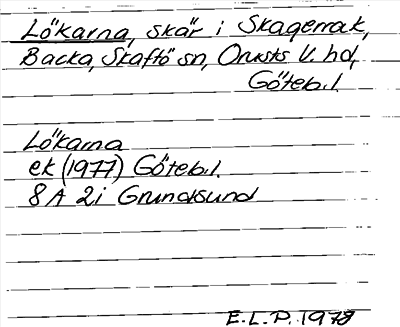 Lökarna, skär i Skagerrak,
Backa, Skaftö sn, Orusts V. hd,
Göteb.l.
Lökarna
ek (1977) Göteb.l.
8 A 2i Grundsund
E.L.P. 1978